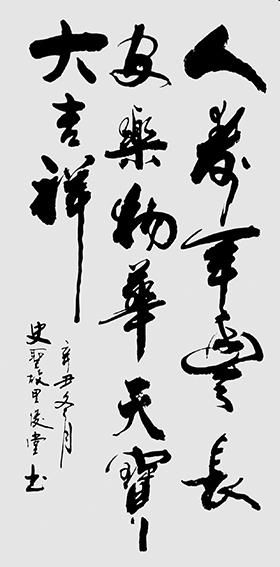 人寿年豐長
安樂物華天寶
大吉祥
辛丑冬月
史聖故里俊堂书